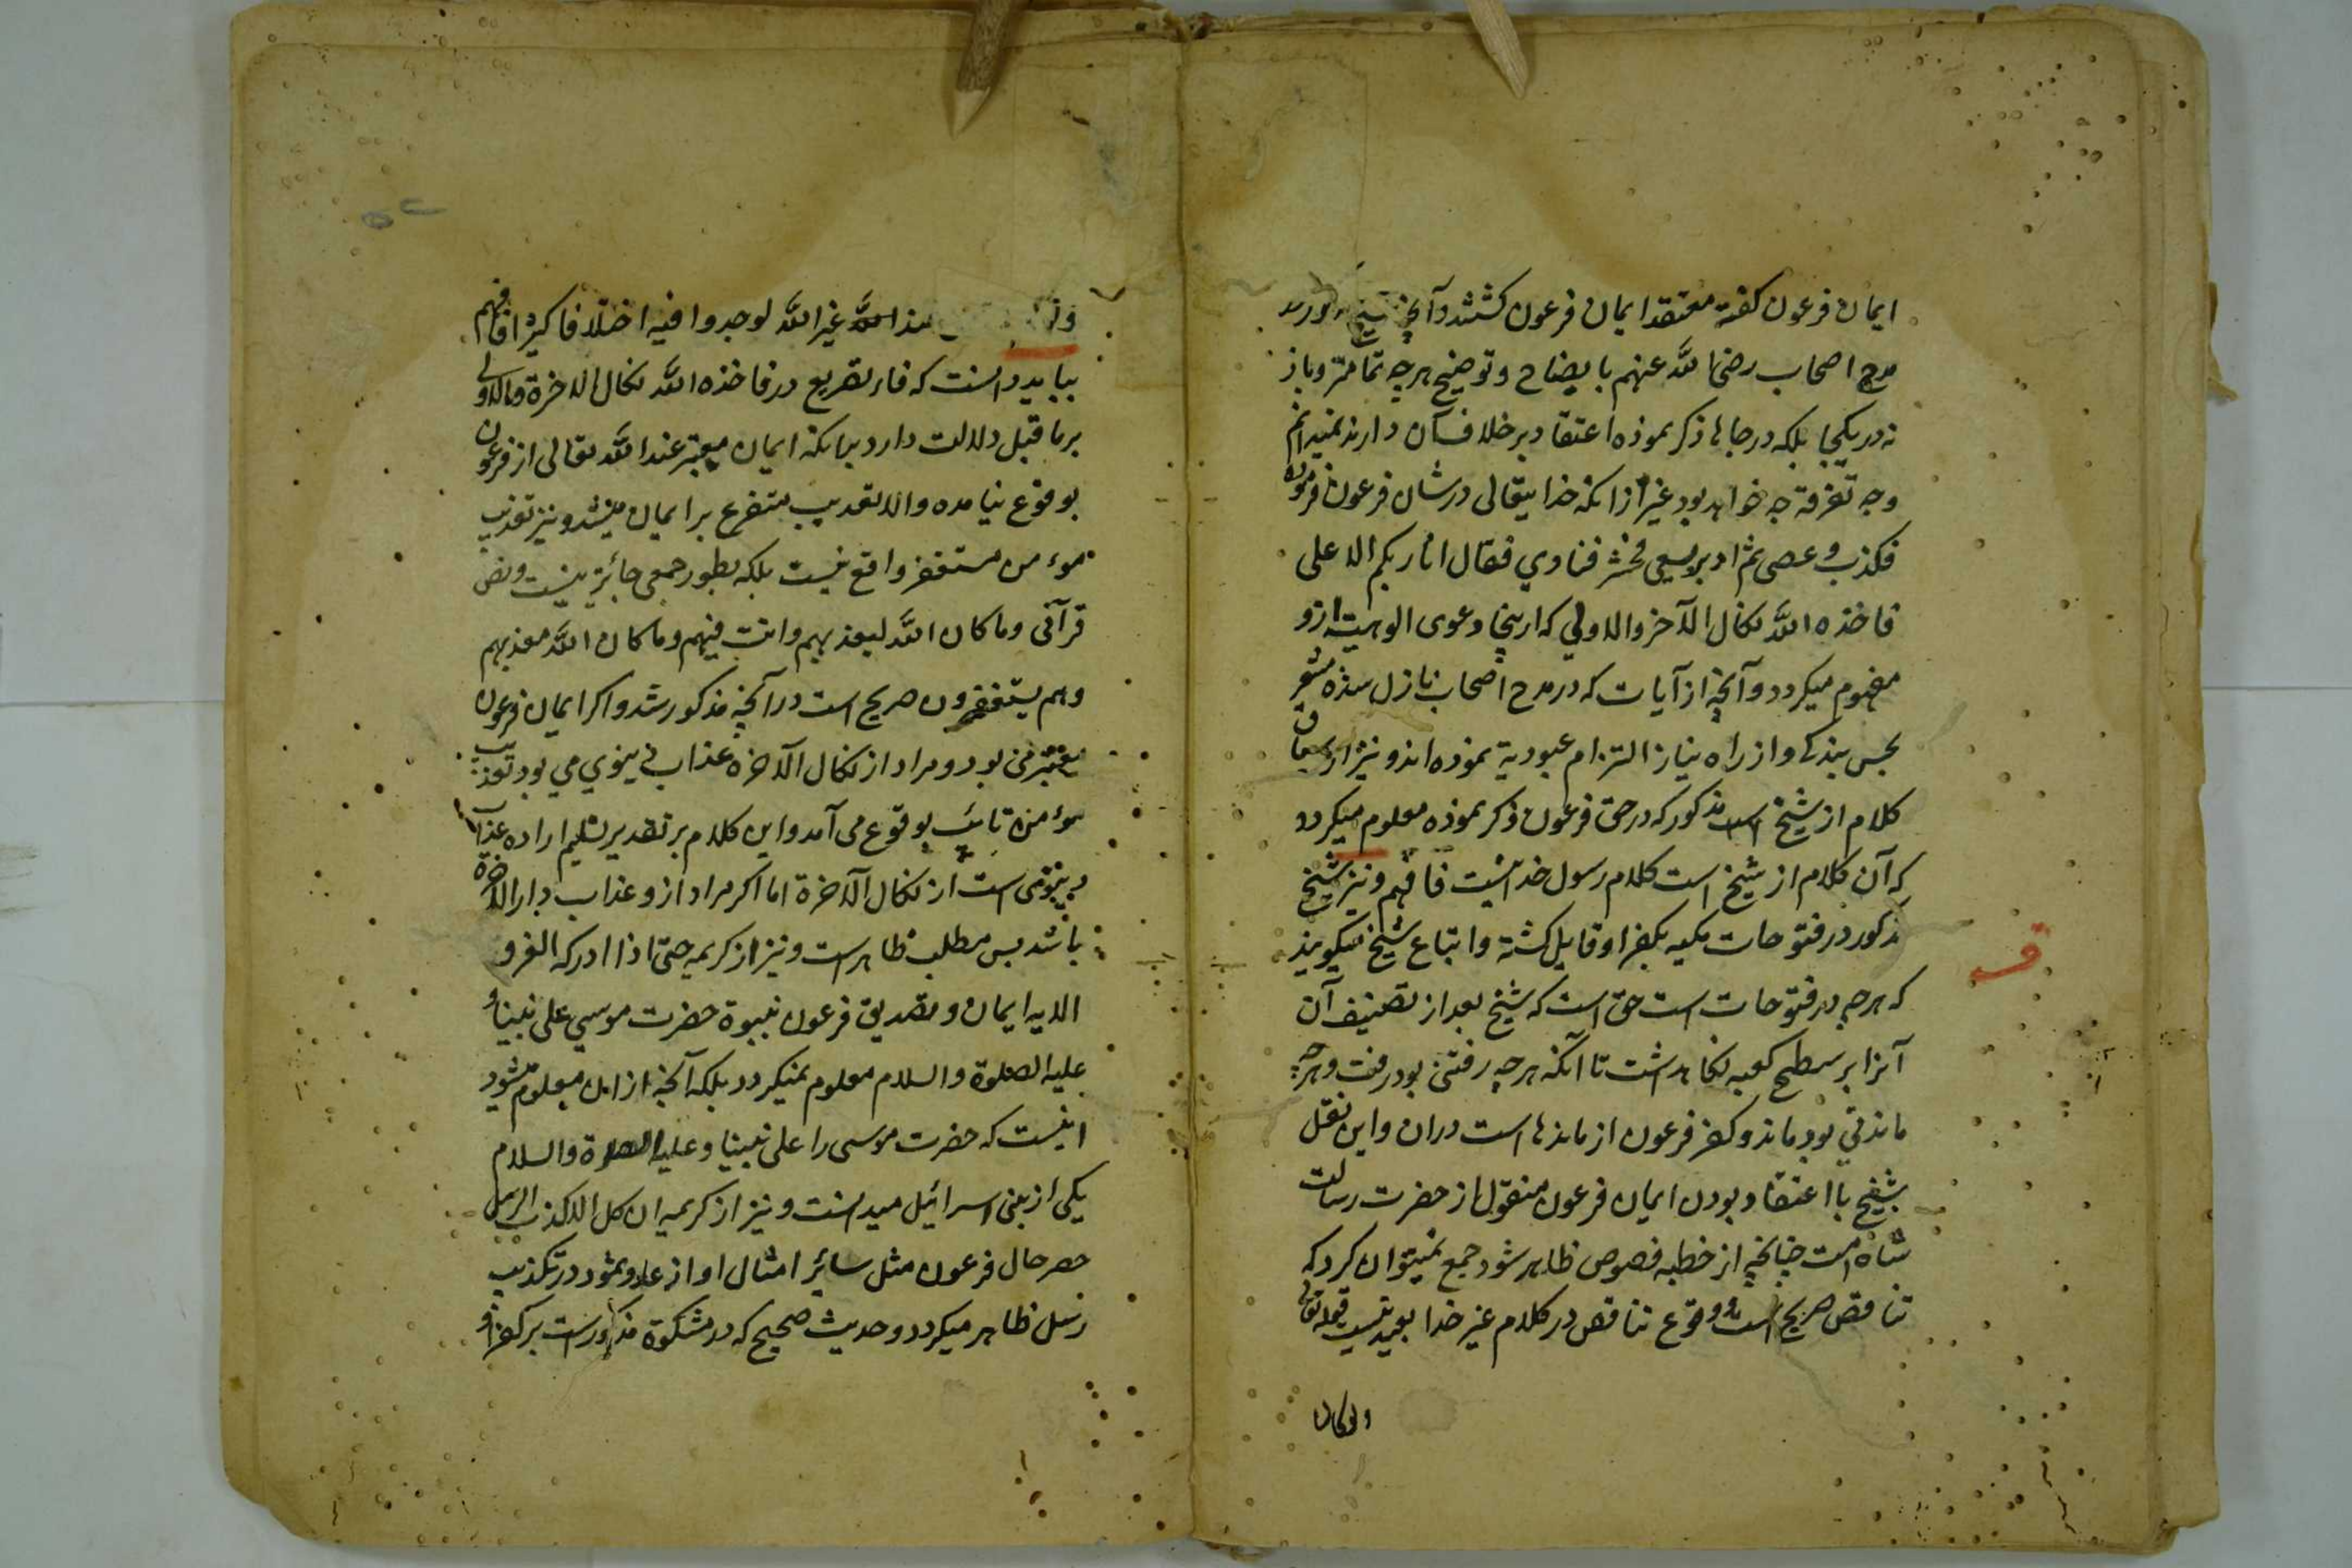 ایمان فرعون کفته معتقد ایمان فرعون کشتند و آنچه شیخ
مدح اصحاب رضی الله عنهم بایضاح و توضیح هرچه تمامتر و باز
نه در یکجا بلکه در جاها ذکر نموده اعتقاد بر خلاف آن دارند نمیدانم
وجه تفرقه چه خواهد بود غیر از انکه خدایتعالی در شان فرعون فرموده
فکذب و عصی ثم ادبر یسعی فحشر فنادی فقال انا ربکم الاعلی
فاخذه الله نکال الآخرة والاولی که ازینجا دعوی الوهیت ازو
مفهوم میکردد و آنچه از آیات که در مدح اصحاب نازل شده مشعر
بحس بندکی و از راه نیاز التزام عبودیة نموده اند و نیز از سیاق
کلام از شیخ است مذکور که در حق فرعون ذکر نموده معلوم میکردد
که آن کلام از شیخ است کلام رسول خدا نیست فافهم و نیز شیخ
مذکور در فتوحات مکیه بکفر او قایل کشته و اتباع شیخ میکویند
که هرچه در فتوحات است حق است که شیخ بعد از تصنیف آن
آنرا بر سطح کعبه نکاهداشت تا آنکه هرچه رفتنی بود رفت و هرچه
ماندنی بود ماند و کفر فرعون از ماندها است دران و این نقل
شیخ با اعتقاد بودن ایمان فرعون منقول از حضرت رسالت
شاه است چنانچه از خطبه فصوص ظاهر شود جمع نمیتوان کرد که
تناقض صریح است و وقوع تناقض در کلام غیر خدا بعید نیست قوله تعالی
ولو کان
ولو عند الله غیر الله لوجدوا فیه اختلافا کثیرا فافهم
بباید دانست که فاء تفریع در فاخذه الله نکال الاخرة والاولی
بر ما قبل دلالت دارد بیانکه ایمان معتبر عند الله تعالی از فرعون
بوقوع نیامده والا تعذیب متفرع بر ایمان میشد و نیز تعذیب
موءمن مستغفر واقع نیست بلکه بطور جمعی جائز نیست و نص
قرآنی وما کان الله لیعذبهم وانت فیهم وما کان الله معذبهم
وهم یستغفرون صریح است در آنچه مذکور شد و اکر ایمان فرعون
معتبر می بود و مراد از نکال الآخره عذاب دینوی می بود تعذیب
موءمن تائب بوقوع می آمد و این کلام بر تقدیر تسلیم اراده عذاب
دینوی است از نکال الآخرة اما اکر مراد ازو عذاب دار الآخرة
باشد پس مطلب ظاهر است و نیز از کریمه حتی اذا ادرکه الغرق
الایه ایمان و تصدیق فرعون بنبوة حضرت موسی علی نبینا و
علیه الصلوة والسلام معلوم نمیکردد بلکه آنچه از این معلوم میشود
اینست که حضرت موسی را علی نبینا و علیه الصلوة والسلام
یکی از بنی اسرائیل میدانست و نیز از کریمه ان کل الا کذب الرسل
حصر حال فرعون مثل سائر امثال او از عاد و ثمود در تکذیب
رسل ظاهر میکردد و حدیث صحیح که در مشکوة مذکور است بر کفر او